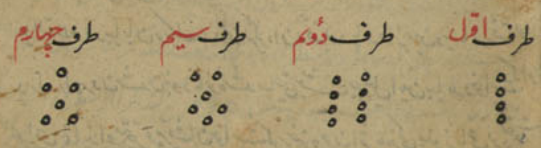 طرف اوّل طرف دوم طرف سیم طرف چهارم